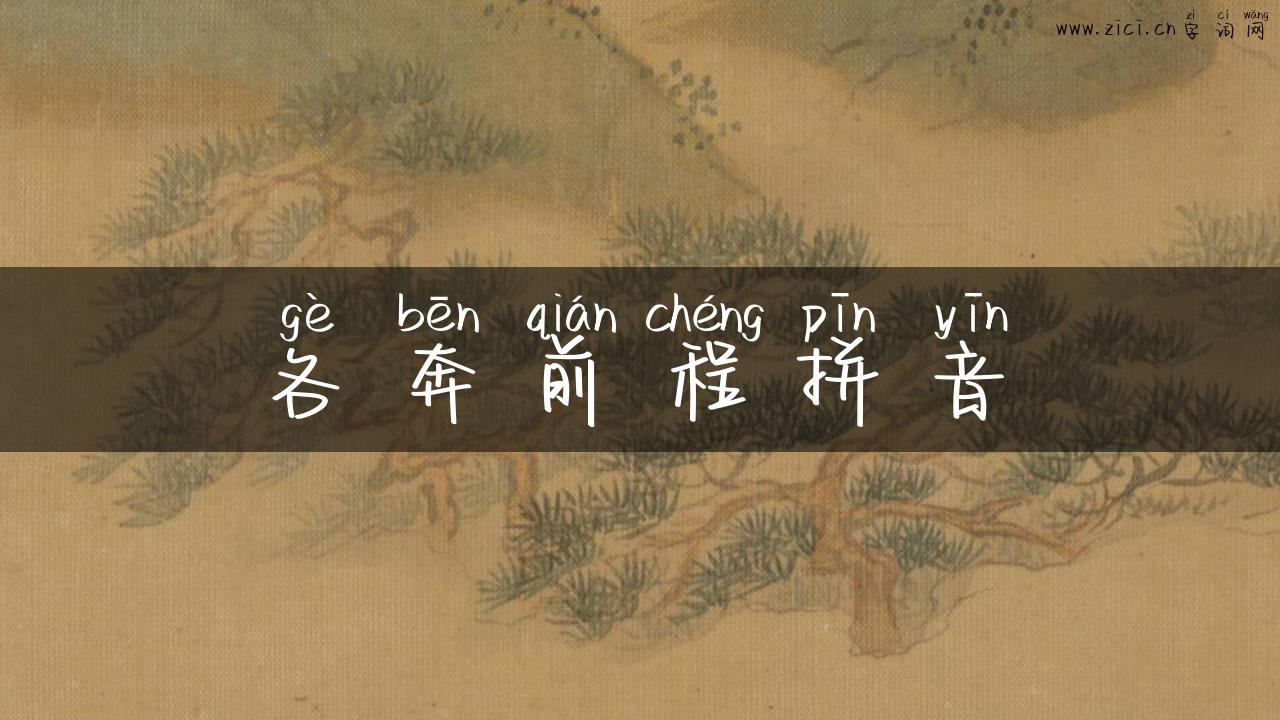 zì cí wǎng
www.zici.cn 字 词 网
gè bēn qián chéng pīn yīn
各 奔 前 程 拼 音